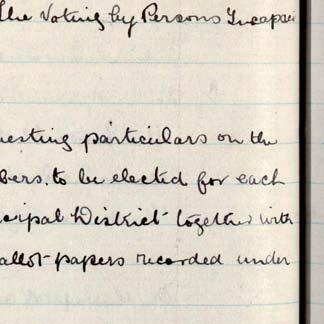 The Voting by Persons Incapac
uesting particulars on the
bers. to be elected for each
icipal District together with
allot-papers recorded under